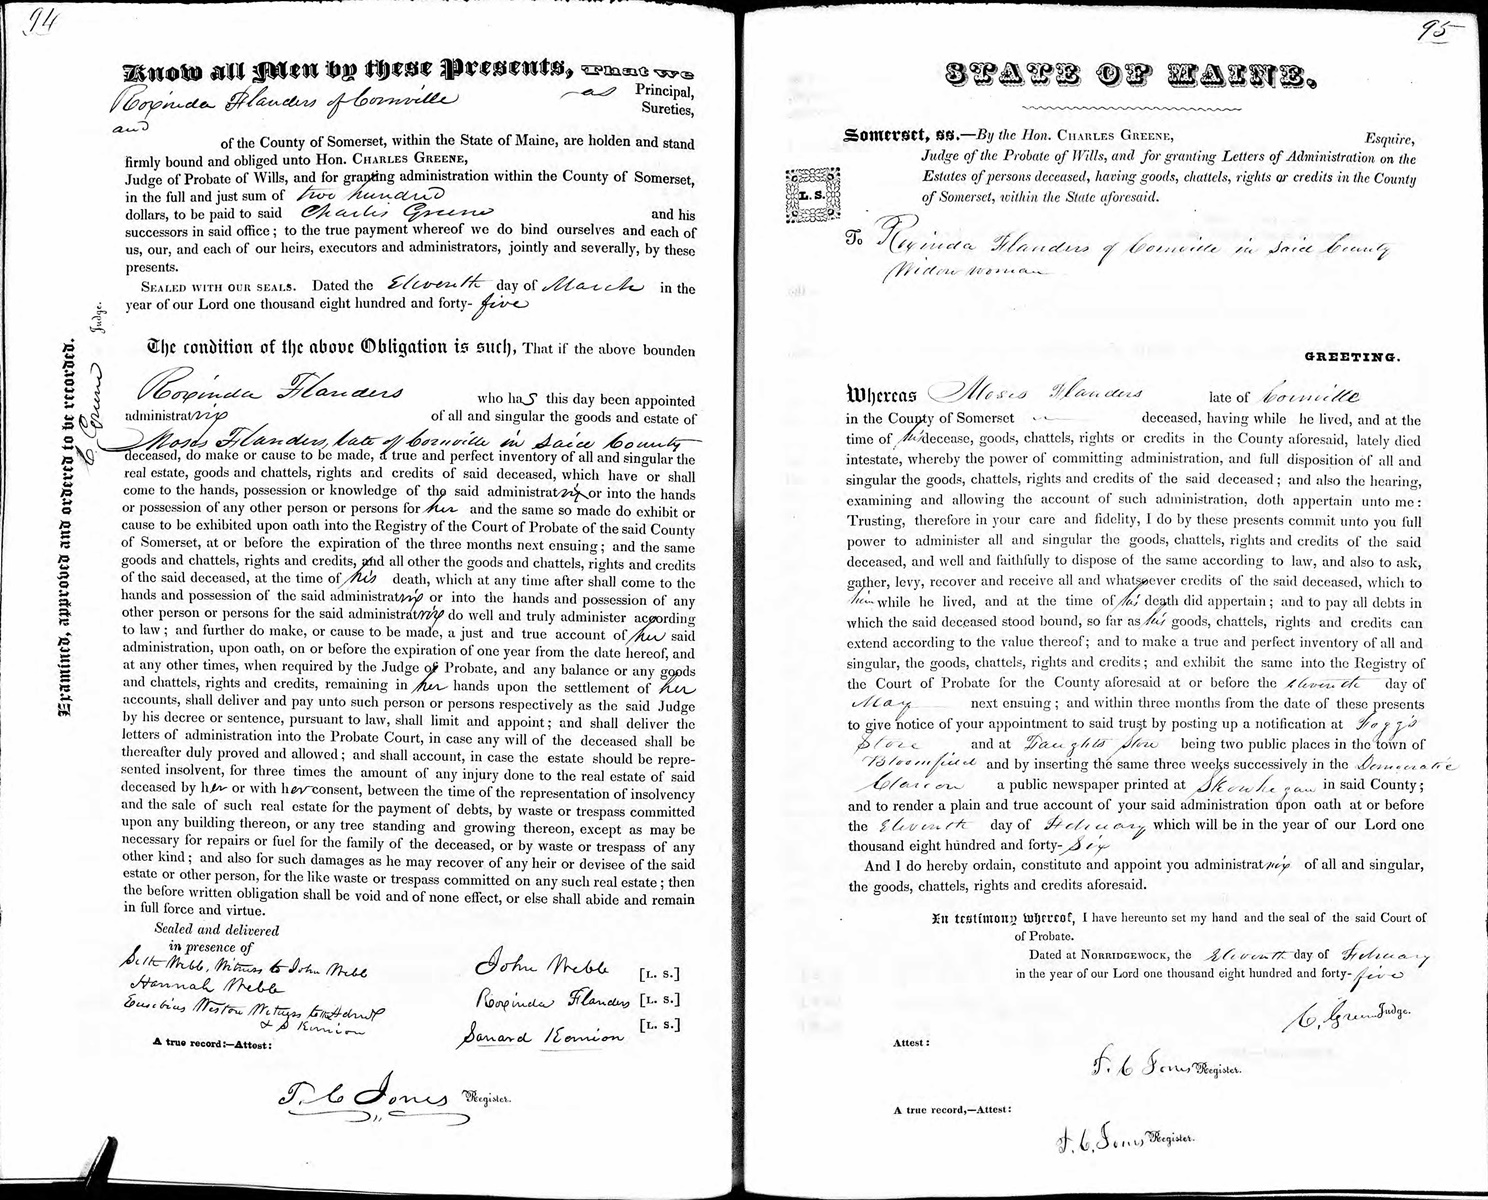 94
Know all Men by these Presents, That we
Roxinda Flanders of Cornville — as Principal,
and Sureties,
of the County of Somerset, within the State of Maine, are holden and stand
firmly bound and obliged unto Hon. CHARLES GREENE,
Judge of Probate of Wills, and for granting administration within the County of Somerset,
in the full and just sum of two hundred
dollars, to be paid to said Charles Greene and his
successors in said office; to the true payment whereof we do bind ourselves and each of
us, our, and each of our heirs, executors and administrators, jointly and severally, by these
presents.
SEALED WITH OUR SEALS. Dated the Eleventh day of March in the
year of our Lord one thousand eight hundred and forty- five
The condition of the above Obligation is such, That if the above bounden
Roxinda Flanders who has this day been appointed
administratrix of all and singular the goods and estate of
Moses Flanders, late of Cornville in said County
deceased, do make or cause to be made, a true and perfect inventory of all and singular the
real estate, goods and chattels, rights and credits of said deceased, which have or shall
come to the hands, possession or knowledge of the said administratrix or into the hands
or possession of any other person or persons for her and the same so made do exhibit or
cause to be exhibited upon oath into the Registry of the Court of Probate of the said County
of Somerset, at or before the expiration of the three months next ensuing; and the same
goods and chattels, rights and credits, and all other the goods and chattels, rights and credits
of the said deceased, at the time of his death, which at any time after shall come to the
hands and possession of the said administratrix or into the hands and possession of any
other person or persons for the said administratrix do well and truly administer according
to law; and further do make, or cause to be made, a just and true account of her said
administration, upon oath, on or before the expiration of one year from the date hereof, and
at any other times, when required by the Judge of Probate, and any balance or any goods
and chattels, rights and credits, remaining in her hands upon the settlement of her
accounts, shall deliver and pay unto such person or persons respectively as the said Judge
by his decree or sentence, pursuant to law, shall limit and appoint; and shall deliver the
letters of administration into the Probate Court, in case any will of the deceased shall be
thereafter duly proved and allowed; and shall account, in case the estate should be repre-
sented insolvent, for three times the amount of any injury done to the real estate of said
deceased by her or with her consent, between the time of the representation of insolvency
and the sale of such real estate for the payment of debts, by waste or trespass committed
upon any building thereon, or any tree standing and growing thereon, except as may be
necessary for repairs or fuel for the family of the deceased, or by waste or trespass of any
other kind; and also for such damages as he may recover of any heir or devisee of the said
estate or other person, for the like waste or trespass committed on any such real estate; then
the before written obligation shall be void and of none effect, or else shall abide and remain
in full force and virtue.
Sealed and delivered
in presence of
Seth Webb, Witness to John Webb
Hannah Webb
Eusebius Weston Witness to the Admx
& S Kennion
John Webb [L. S.]
Roxinda Flanders [L. S.]
Sanard Kennion [L. S.]
A true record:—Attest:
T. C Jones Register.
Examined, approved and ordered to be recorded.
C. Greene Judge.
95
STATE OF MAINE.
Somerset, ss.—By the Hon. CHARLES GREENE, Esquire,
Judge of the Probate of Wills, and for granting Letters of Administration on the
Estates of persons deceased, having goods, chattels, rights or credits in the County
of Somerset, within the State aforesaid.
L. S.
To Roxinda Flanders of Cornville in said County
Widow woman
GREETING.
Whereas Moses Flanders late of Cornville
in the County of Somerset deceased, having while he lived, and at the
time of his decease, goods, chattels, rights or credits in the County aforesaid, lately died
intestate, whereby the power of committing administration, and full disposition of all and
singular the goods, chattels, rights and credits of the said deceased; and also the hearing,
examining and allowing the account of such administration, doth appertain unto me:
Trusting, therefore in your care and fidelity, I do by these presents commit unto you full
power to administer all and singular the goods, chattels, rights and credits of the said
deceased, and well and faithfully to dispose of the same according to law, and also to ask,
gather, levy, recover and receive all and whatsoever credits of the said deceased, which to
him while he lived, and at the time of his death did appertain; and to pay all debts in
which the said deceased stood bound, so far as his goods, chattels, rights and credits can
extend according to the value thereof; and to make a true and perfect inventory of all and
singular, the goods, chattels, rights and credits; and exhibit the same into the Registry of
the Court of Probate for the County aforesaid at or before the eleventh day of
May next ensuing; and within three months from the date of these presents
to give notice of your appointment to said trust by posting up a notification at Fogg's
Store and at Faught's Store being two public places in the town of
Bloomfield and by inserting the same three weeks successively in the Democratic
Clarion a public newspaper printed at Skowhegan in said County;
and to render a plain and true account of your said administration upon oath at or before
the Eleventh day of February which will be in the year of our Lord one
thousand eight hundred and forty- six
And I do hereby ordain, constitute and appoint you administratrix of all and singular,
the goods, chattels, rights and credits aforesaid.
In testimony whereof, I have hereunto set my hand and the seal of the said Court of
of Probate.
Dated at NORRIDGEWOCK, the Eleventh day of February
in the year of our Lord one thousand eight hundred and forty- five
C. Greene Judge.
Attest:
T. C Jones Register.
A true record,—Attest:
T. C. Jones Register.